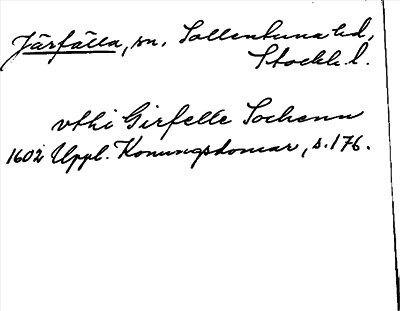 Järfälla, sn. Sollentuna hd,
Stockh. l.
vthi Girfelle Sochenn
1602 Uppl. Konungsdomar, s. 176.